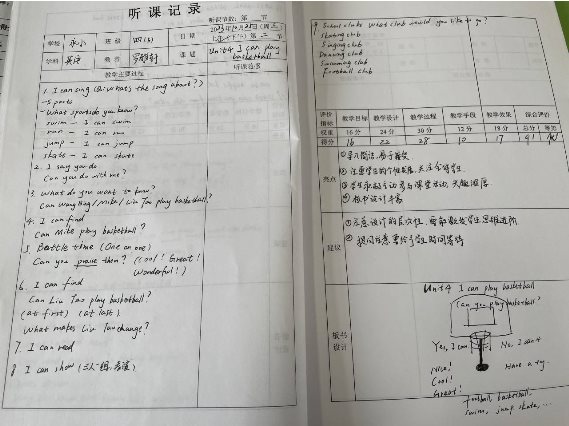 听课记录
听课节数: 第 二 节
学校
班级 四(6)
日期 2023年10月25日(周三)
上午 第二节
学科 英语
教者
课题 Unit4 I can play basketball
教学主要过程
听课随感
1. I can sing (What's the song about?)
-Sports
-What sports do you know?
swim - I can swim
run - I can run
jump - I can jump
skate - I can skate
2. I say you do
Can you do with me?
3. What do you want to know?
Can Wang Bing/Mike/Liu Tao play basketball?
4. I can find
Can Mike play basketball?
5. Battle time (One on one)
Can you praise them? (Cool! Great! Wonderful!)
6. I can find
Can Liu Tao play basketball?
(at first) (at last)
What makes Liu Tao change?
7. I can read
8 I can show (三人一组,表演)
9 School clubs What club would you like to go?
Skating club
Singing club
Dancing club
Swimming club
Football club
评价指标 教学目标 教学设计 教学过程 教学手段 教学效果 综合评价
权重 16分 24分 30分 12分 18分 总分 等第
得分 16 22 28 10 17 91
亮点
①学习简洁,易于接受
②注重学生的个性发展,关注全体学生
③学生积极主动参与课堂活动,兴趣浓厚
④板书设计丰富
建议
①注意设计的层次性,要帮助学生思维进阶
②提问注意要给予学生时间等待
板书设计
Unit4 I can play basketball
Can you play basketball?
Yes, I can No, I can't
Nice! Have a try.
Cool!
Great!
football, basketball,
swim, jump skate, ...